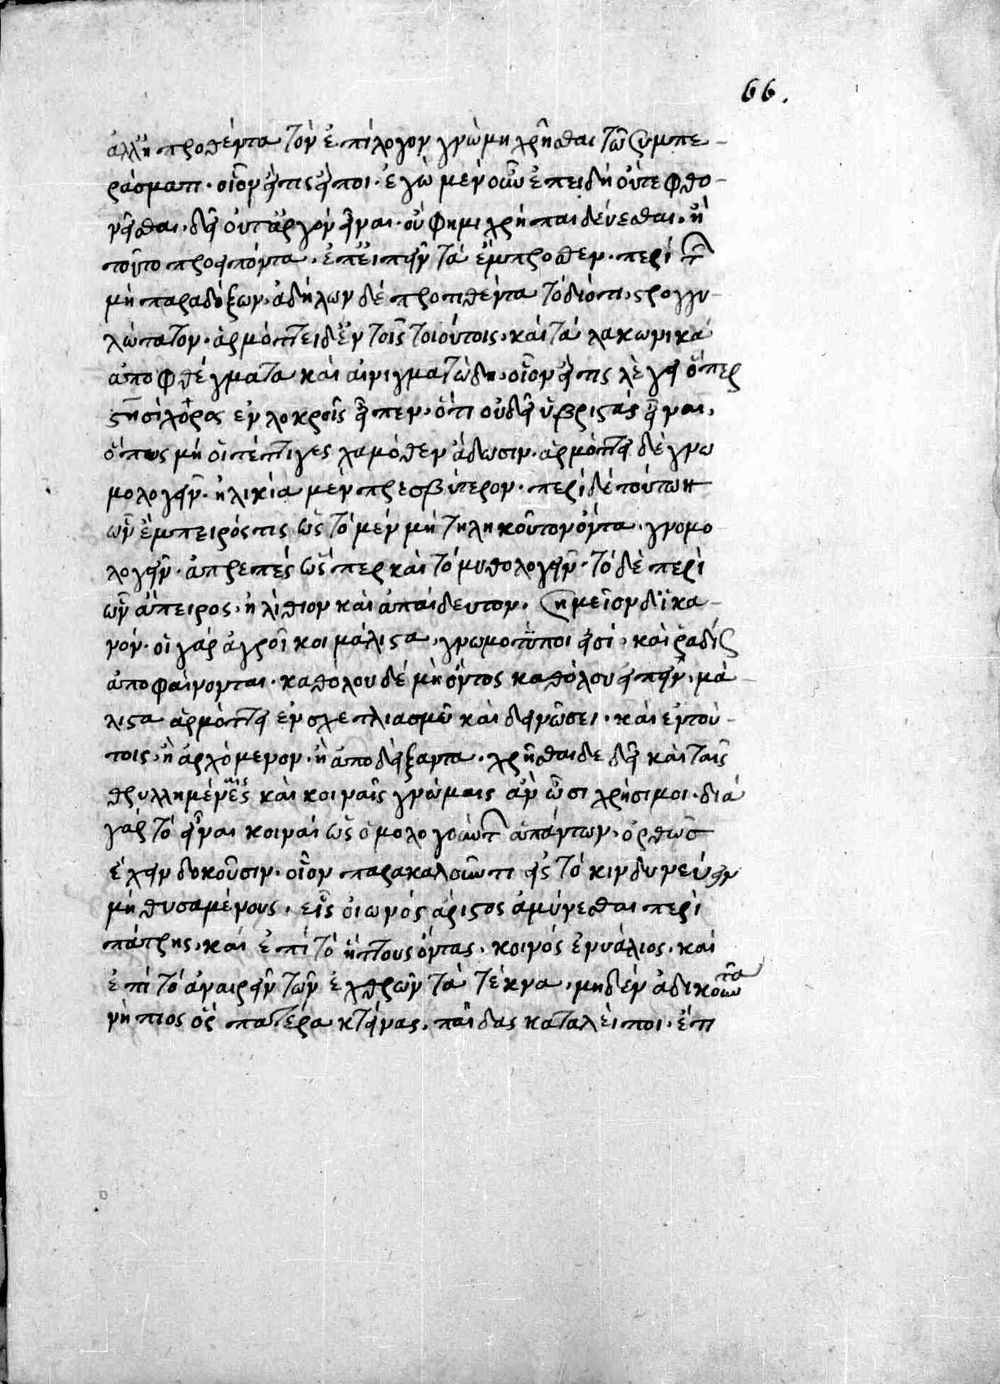 66.
ἀλλ' ἢ προθέντα τὸν ἐπίλογον γνώμῃ χρῆσθαι τῷ συμπε-
ράσματι· οἷον εἴ τις εἴποι· ἐγὼ μὲν οὖν ἐπειδὴ οὔτε φθο-
νεῖσθαι· δεῖ οὔτ' ἀργὸν εἶναι· οὔ φημι χρῆ παιδεύεσθαι· ἢ
τοῦτο προειπόντα· ἐπειπεῖν τὰ ἔμπροσθεν· περὶ
μὴ παραδόξων· ἀδήλων δὲ προτιθέντα τὸ διότι· στρογγυ-
λώτατον· ἁρμόττει δ' ἐν τοῖς τοιούτοις· καὶ τὰ λακωνικὰ
ἀποφθέγματα καὶ αἰνιγματώδη· οἷον εἴ τις λέγει ὅπερ
στησίχορος ἐν λοκροῖς εἶπεν· ὅτι οὐ δεῖ ὑβριστὰς εἶναι·
ὅπως μὴ οἱ τέττιγες χαμόθεν ἄδωσιν· ἁρμόττει δὲ γνω
μολογεῖν· ἡλικία μὲν πρεσβύτερον· περὶ δὲ τούτων
ὧν ἔμπειρός τις ὡς τὸ μὲν μὴ τηλικοῦτον ὄντα· γνομο
λογεῖν· ἀπρεπές ὥσπερ καὶ τὸ μυθολογεῖν· τὸ δὲ περὶ
ὧν ἄπειρος· ἠλίθιον καὶ ἀπαίδευτον· σημεῖον δ' ἱκα-
νόν· οἱ γὰρ ἀγροῖκοι μάλιστα· γνωμοτύποι εἰσί· καὶ ῥαδίως
ἀποφαίνονται· καθόλου δὲ μὴ ὄντος καθόλου εἰπεῖν· μά
λιστα ἁρμόττει ἐν σχετλιασμῷ καὶ δεινώσει· καὶ ἐν τού-
τοις· ἢ ἀρχόμενον· ἢ ἀποδείξαντα· χρῆσθαι δὲ δεῖ καὶ ταῖς
θρυλλημέναις καὶ κοιναῖς γνώμαις ἂν ὦσι χρήσιμοι· διὰ
γὰρ τὸ εἶναι κοιναὶ ὡς ὁμολογούντων ἁπάντων· ὀρθῶς
ἔχειν δοκοῦσιν· οἷον παρακαλοῦντι εἰς τὸ κινδυνεύειν
μὴ θυσαμένους· εἷς οἰωνὸς ἄριστος ἀμύνεσθαι περὶ
πάτρης· καὶ ἐπὶ τὸ ἥττους ὄντας· κοινὸς ἐνυάλιος· καὶ
ἐπὶ τὸ ἀναιρεῖν τῶν ἐχθρῶν τὰ τέκνα· μηδὲν ἀδικοῦντα
νήπιος ὃς πατέρα κτείνας· παῖδας καταλείποι· ἔτι